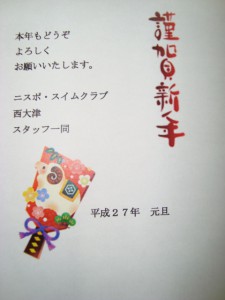 謹賀新年
本年もどうぞ
よろしく
お願いいたします。
ニスポ・スイムクラブ
西大津
スタッフ一同
平成27年 元旦